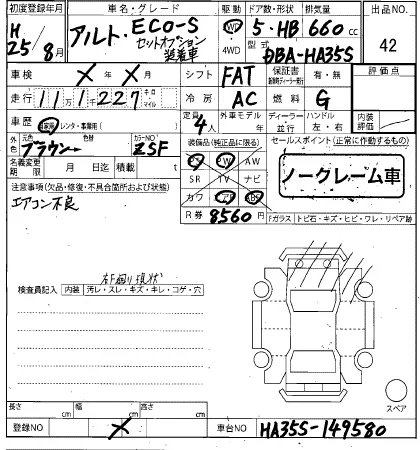 初度登録年月 車名・グレード 駆動 ドア数・形状 排気量 出品NO.
H 25/8月 アルト ECO-S セットオプション装着車 2WD 4WD 5・HB 660cc 42
型式 DBA-HA35S
車検 ×年 ×月 シフト FAT 保証書 有・無 評価点
走行 11万1千227 キロ マイル 冷房 AC 燃料 G
車歴 自家用 レンタ・事業用( ) 定員 4人 外車モデル年 ディーラー 並行 ハンドル 左・右 内装評価
外色 元色 ブラウン→ カラーNO ZSF 装備品(純正品に限る) セールスポイント(正常に作動するもの)
名義変更期限 月 日迄 積載 t PS PW AW ノークレーム車
SR TV ナビ
注意事項(欠品・修復・不具合箇所および状態) カワ エアB ABS
エアコン不良 R券 8560円 Fガラス トビ石・キズ・ヒビ・ワレ・リペア跡
右F廻り現状
検査員記入 内装 汚レ・スレ・キズ・キレ・コゲ・穴
スペア
長さ cm 幅 cm 高さ cm
登録NO × 車台NO HA35S-149580